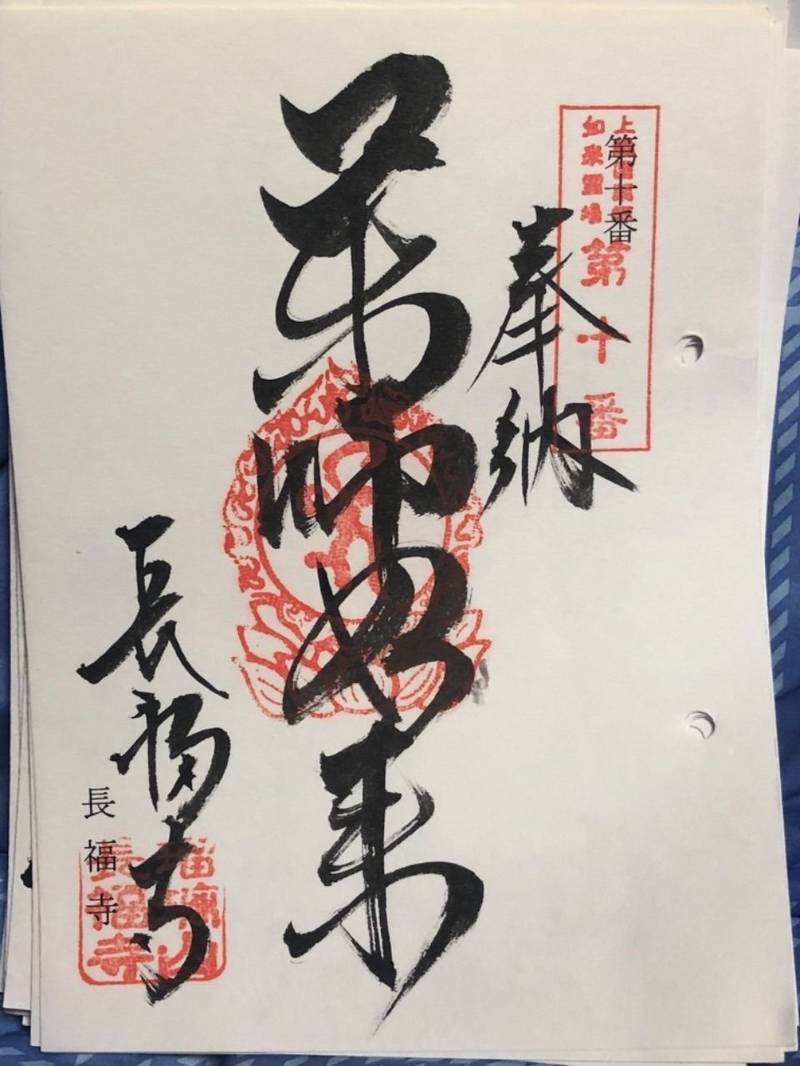 第十番
如来霊場
第十番
奉納
薬師如来
長福寺
長福寺
山
長福寺